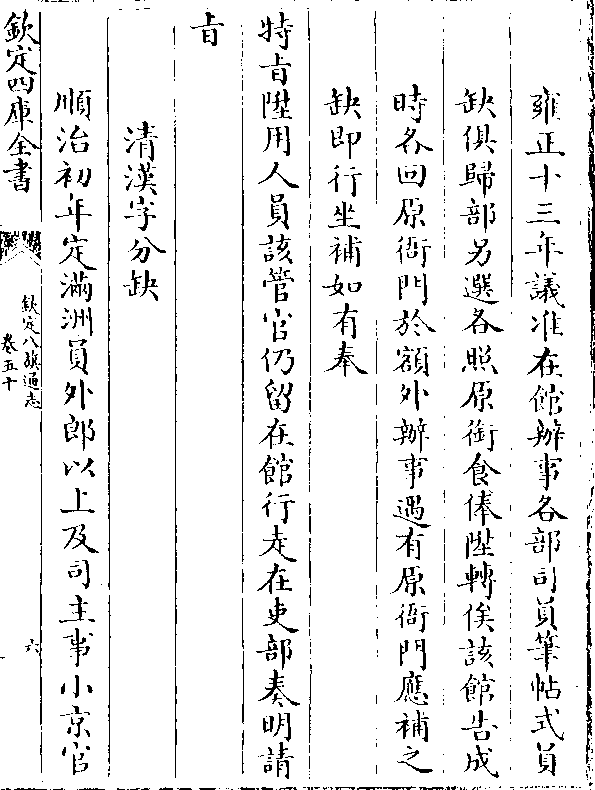 雍正十三年議准在館辦事各部司員筆帖式員
缺俱歸部另選各照原銜食俸陞轉俟該館告成
時各回原衙門於額外辦事遇有原衙門應補之
缺即行坐補如有奉
特㫖陞用人員該管官仍留在館行走在吏部奏明請
㫖
清漢字分缺
順治初年定滿洲員外郎以上及司主事小京官
欽定四庫全書
欽定八旗通志
卷五十
六